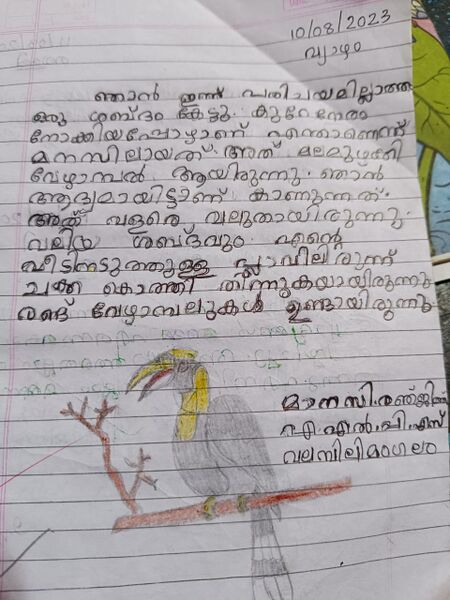 10/08/2023
വ്യാഴം
ഞാൻ ഇന്ന് പരിചയമില്ലാത്ത
ഒരു ശബ്ദം കേട്ടു. കുറേനേരം
നോക്കിയപ്പോഴാണ് എന്താണെന്ന്
മനസിലായത്. അത് മലമുഴക്കി
വേഴാമ്പൽ ആയിരുന്നു. ഞാൻ
ആദ്യമായിട്ടാണ് കാണുന്നത്.
അത് വളരെ വലുതായിരുന്നു.
വലിയ ശബ്ദവും എന്റെ
വീടിനടുത്തുള്ള പ്ലാവിലിരുന്ന്
ചക്ക കൊത്തി തിന്നുകയായിരുന്നു
രണ്ട് വേഴാമ്പലുകൾ ഉണ്ടായിരുന്നു
മാനസി. രഞ്ജിത്ത്
എ.എൽ.പി.എസ്